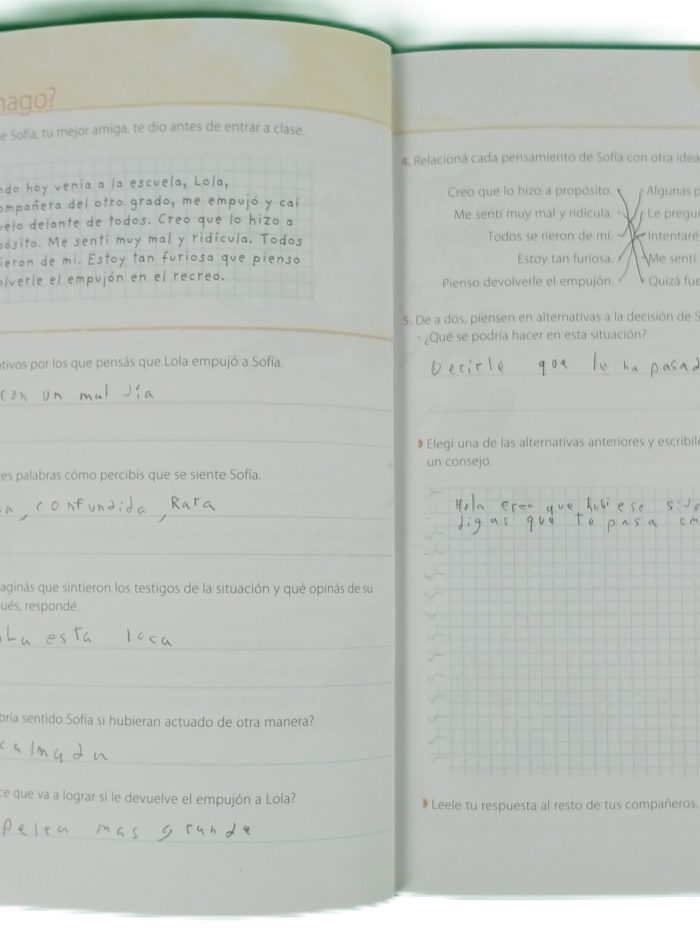 nago?
e Sofía, tu mejor amiga, te dio antes de entrar a clase.
ndo hoy venía a la escuela, Lola,
ompañera del otro grado, me empujó y caí
uelo delante de todos. Creo que lo hizo a
pósito. Me sentí muy mal y ridícula. Todos
ieron de mí. Estoy tan furiosa que pienso
olverle el empujón en el recreo.
otivos por los que pensás que Lola empujó a Sofía.
con un mal día
es palabras cómo percibís que se siente Sofía.
confundida, Rara
aginás que sintieron los testigos de la situación y qué opinás de su
ués, respondé.
esta loca
bría sentido Sofía si hubieran actuado de otra manera?
calmada
ce que va a lograr si le devuelve el empujón a Lola?
Pelea mas grande
4. Relacioná cada pensamiento de Sofía con otra idea
Creo que lo hizo a propósito. Algunas p
Me sentí muy mal y ridícula. Le pregu
Todos se rieron de mí. Intentaré
Estoy tan furiosa. Me sentí
Pienso devolverle el empujón. Quizá fue
5. De a dos, piensen en alternativas a la decisión de S
· ¿Qué se podría hacer en esta situación?
Decirle que le ha pasad
Elegí una de las alternativas anteriores y escribile
un consejo.
Hola creo que hubiese sido
digas que te pasa
Leele tu respuesta al resto de tus compañeros.